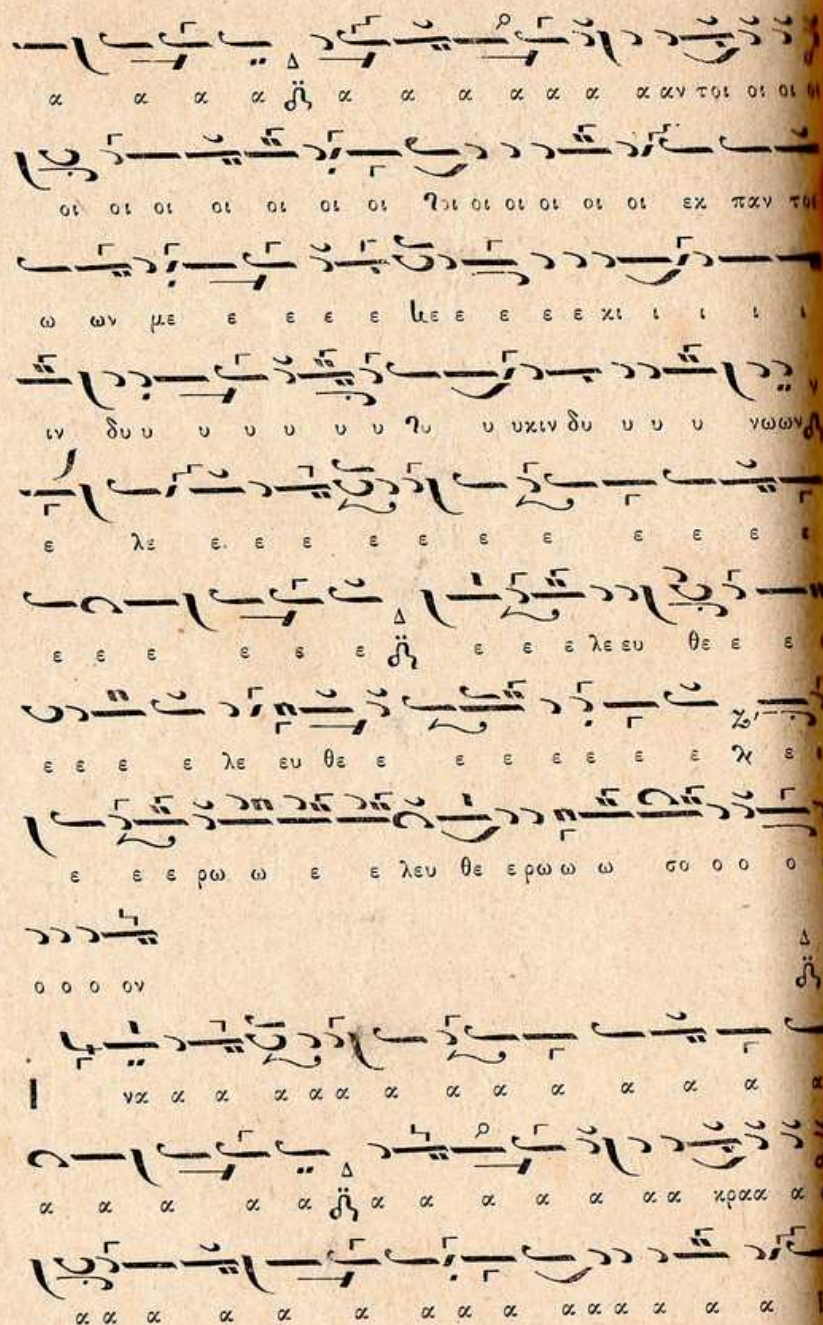 α α α α Δ α α α α α α α αν τοι οι οι οι
οι οι οι οι οι οι οι οι οι οι οι οι οι εκ παν τοι
ω ων με ε ε ε ε ε ε ε ε ε κι ι ι ι ι
ιν δυ υ υ υ υ υ υ υ υ υκιν δυ υ υ υ νωων
ε λε ε ε ε ε ε ε ε ε ε ε ε
ε ε ε ε ε ε Δ ε ε ε λε ευ θε ε ε
ε ε ε ε λε ευ θε ε ε ε ε ε ε ε ε
ε ε ε ρω ω ε ε λευ θε ε ρω ω ω σο ο ο ο
ο ο ο ον Δ
να α α α α α α α α α α α α
α α α α α Δ α α α α α α α κρα α α
α α α α α α α α α α α α α α α